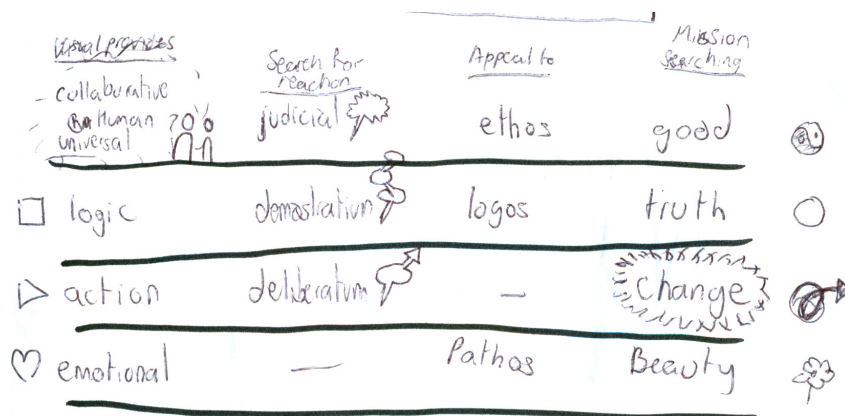 Visual provides
Search for reaction
Appeal to
Mission Searching
collaborative
Human
universal
judicial
ethos
good
logic
demostration
logos
truth
action
deliberatum
—
Change
emotional
—
Pathos
Beauty